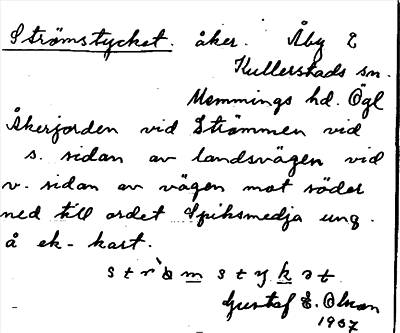 Strömstycket. åker. Åby E
Kullerstads sn.
Memmings hd. Ögl
Åkerjorden vid Strömmen vid
s. sidan av landsvägen vid
v. sidan av vägen mot söder
ned till ordet Spiksmedja ung.
å ek-kart.
strömstykət
Gustaf E. Olsson
1937